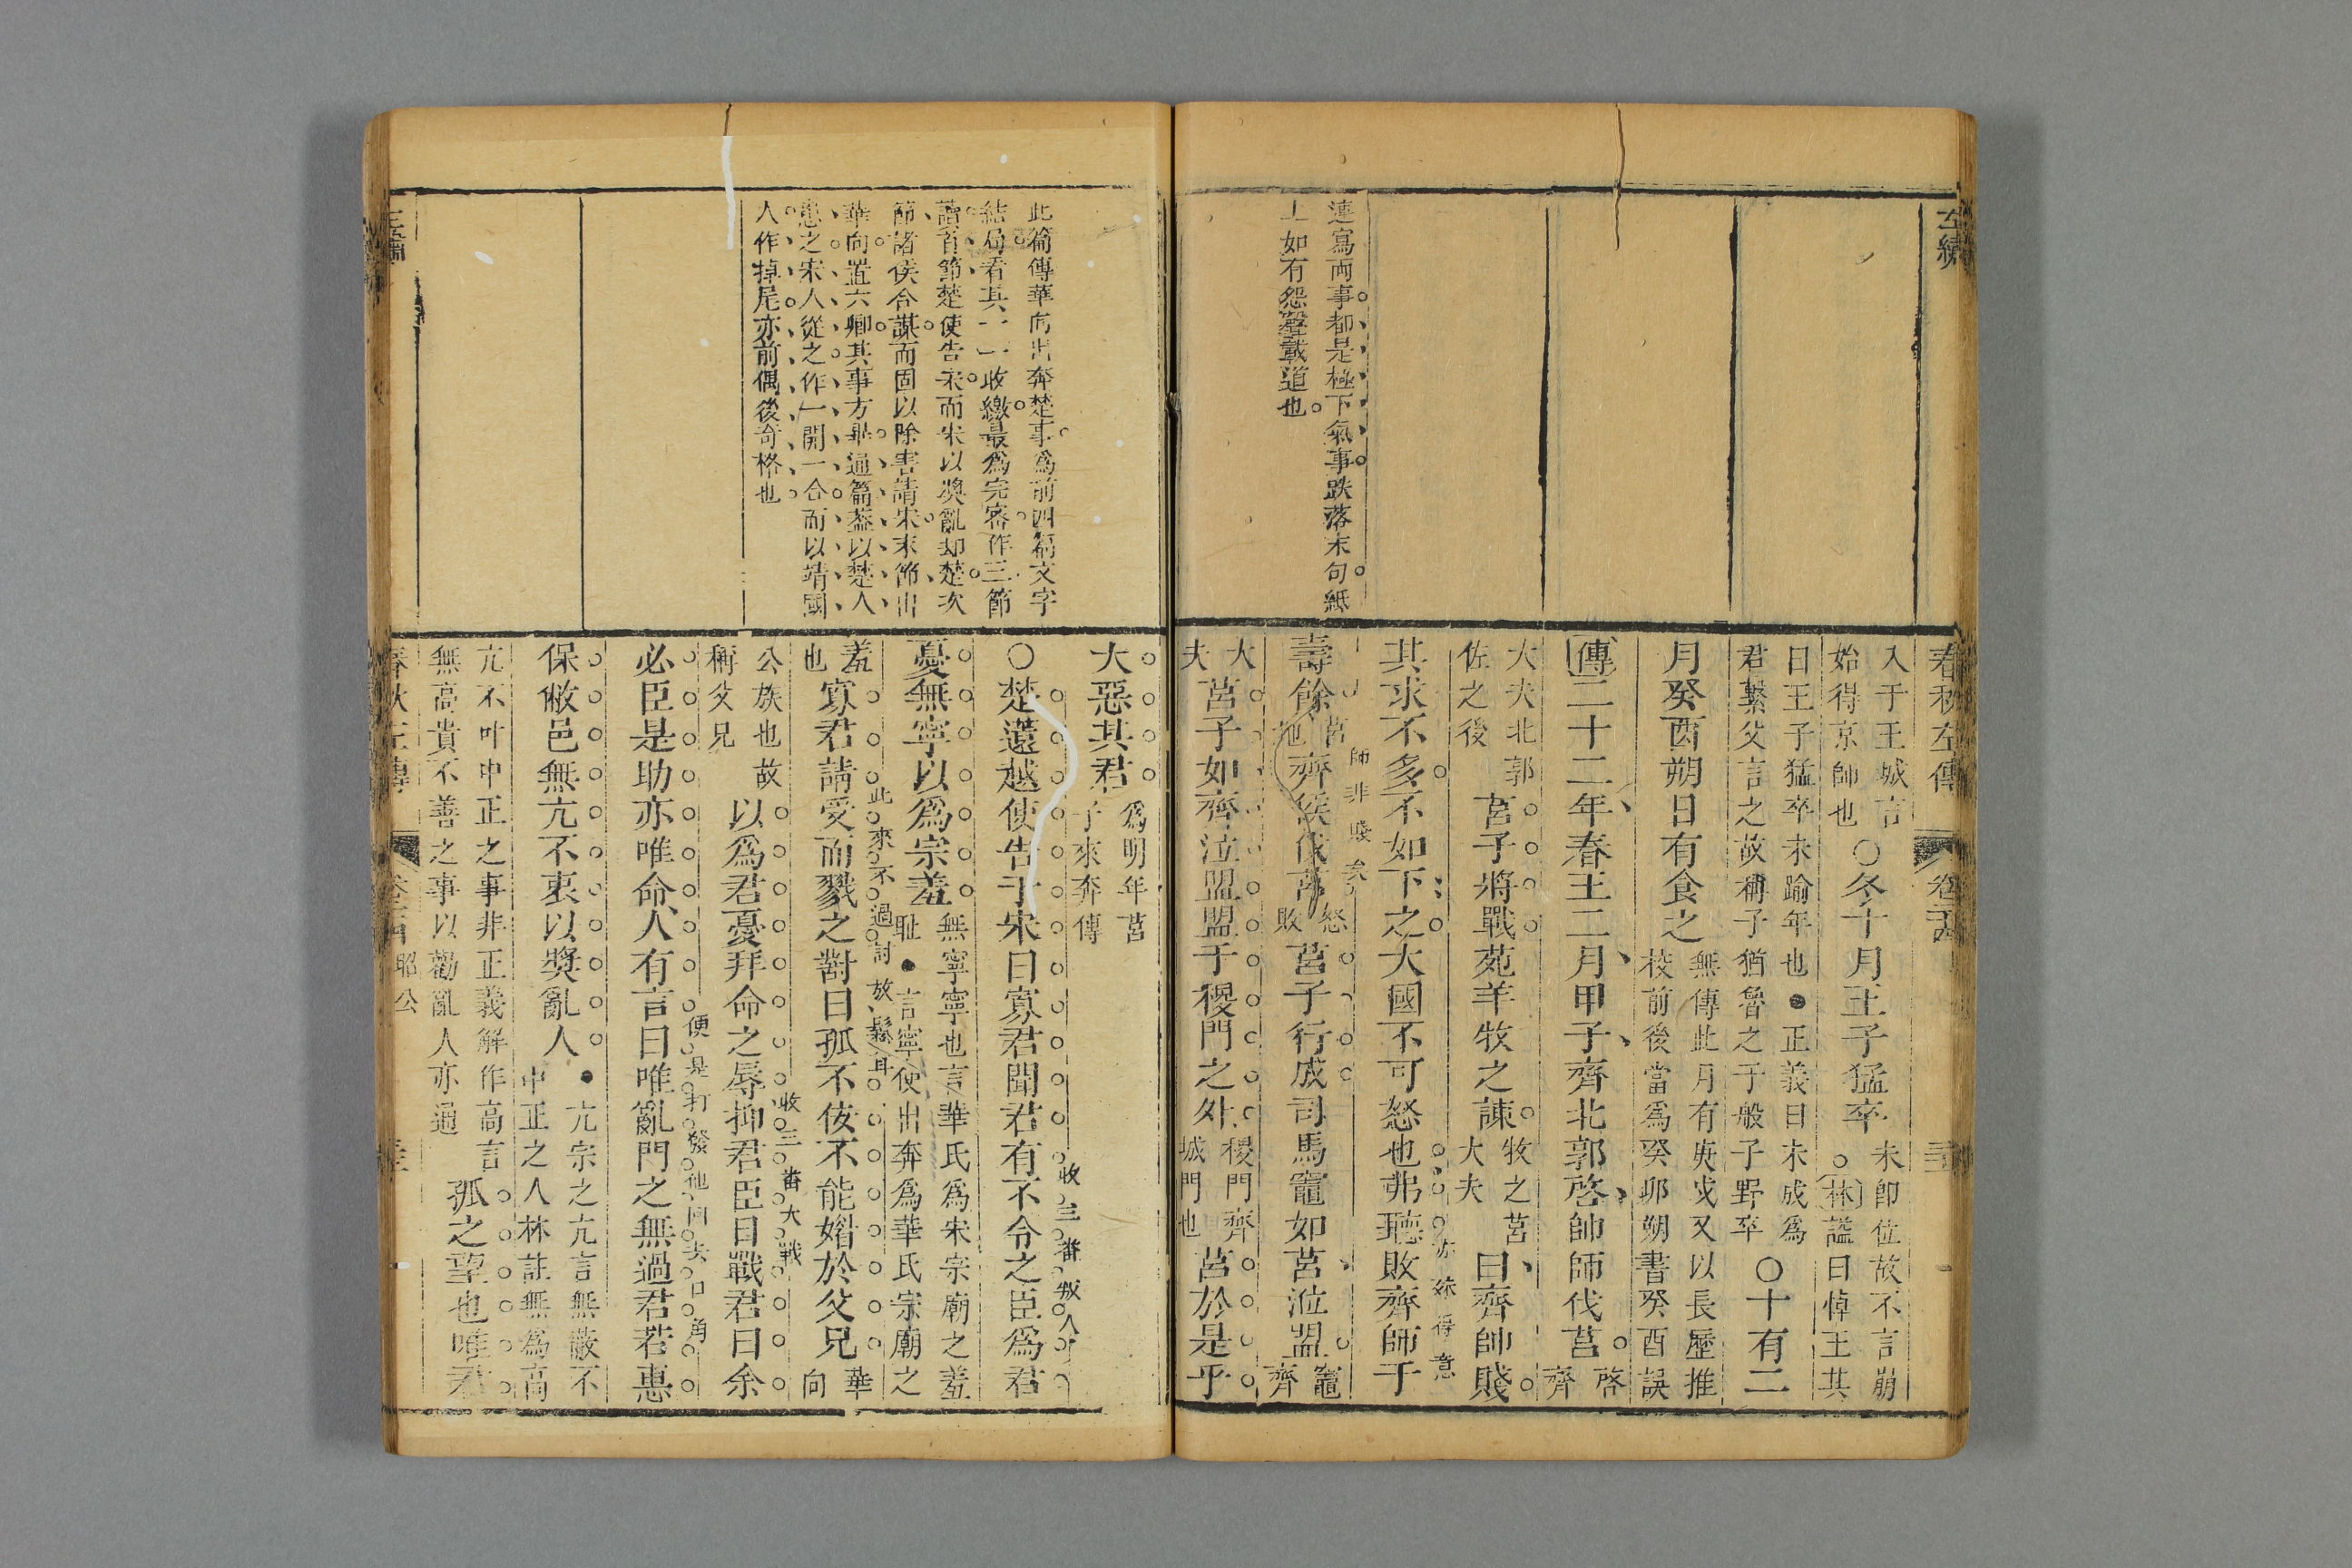 左繡
春秋左傳
卷二十四
連寫兩事都是極下氣事跌落末句紙
上如有怨聲載道也
入于王城言
始得京師也
○冬十月王子猛卒
未卽位故不言崩
○林謚曰悼王其
曰王子猛卒未踰年也●正義曰未成爲
君繫父言之故稱子猶魯之子般子野卒
○十有二
月癸酉朔日有食之
無傳此月有庚戌又以長歷推
校前後當爲癸卯朔書癸酉誤
傳二十二年春王二月甲子齊北郭啓帥師伐莒
啓齊
大夫北郭
佐之後
莒子將戰苑羊牧之諫
牧之莒
大夫
曰齊帥賤
其求不多不如下之大國不可怒也弗聽敗齊師于
亦殊得意
壽餘
莒地
師非賤矣
齊侯伐莒
怒敗
莒子行成司馬竈如莒涖盟
竈齊
大夫
莒子如齊涖盟盟于稷門之外
稷門齊
城門也
莒於是乎
此篇傳華向出奔楚事爲前四篇文字
結局看其一一收繳最爲完密作三節
讀首節楚使告宋而宋以獎亂却楚次
節諸侯合謀而固以除害請宋末節出
華向置六卿其事方畢通篇葢以楚人
患之宋人從之作一開一合而以靖國
人作掉尾亦前偶後奇格也
大惡其君
爲明年莒
子來奔傳
○楚薳越使告于宋曰寡君聞君有不令之臣爲君
收三番叛人
憂無寧以爲宗羞
無寧寧也言華氏爲宋宗廟之羞
耻●言寧使出奔爲華氏宗廟之
羞
也
寡君請受而戮之對曰孤不佞不能媚於父兄
此來不過討放鬆耳
華向
公族也故
稱父兄
以爲君憂拜命之辱抑君臣日戰君曰余
收三番大戰
必臣是助亦唯命人有言曰唯亂門之無過君若惠
便是打發他回去口角
保敝邑無亢不衷以獎亂人
●亢宗之亢言無蔽不
中正之人林註無爲高
亢不叶中正之事非正義解作高言
無高貴不善之事以勸亂人亦通
孤之望也唯君
春秋左傳
昭公